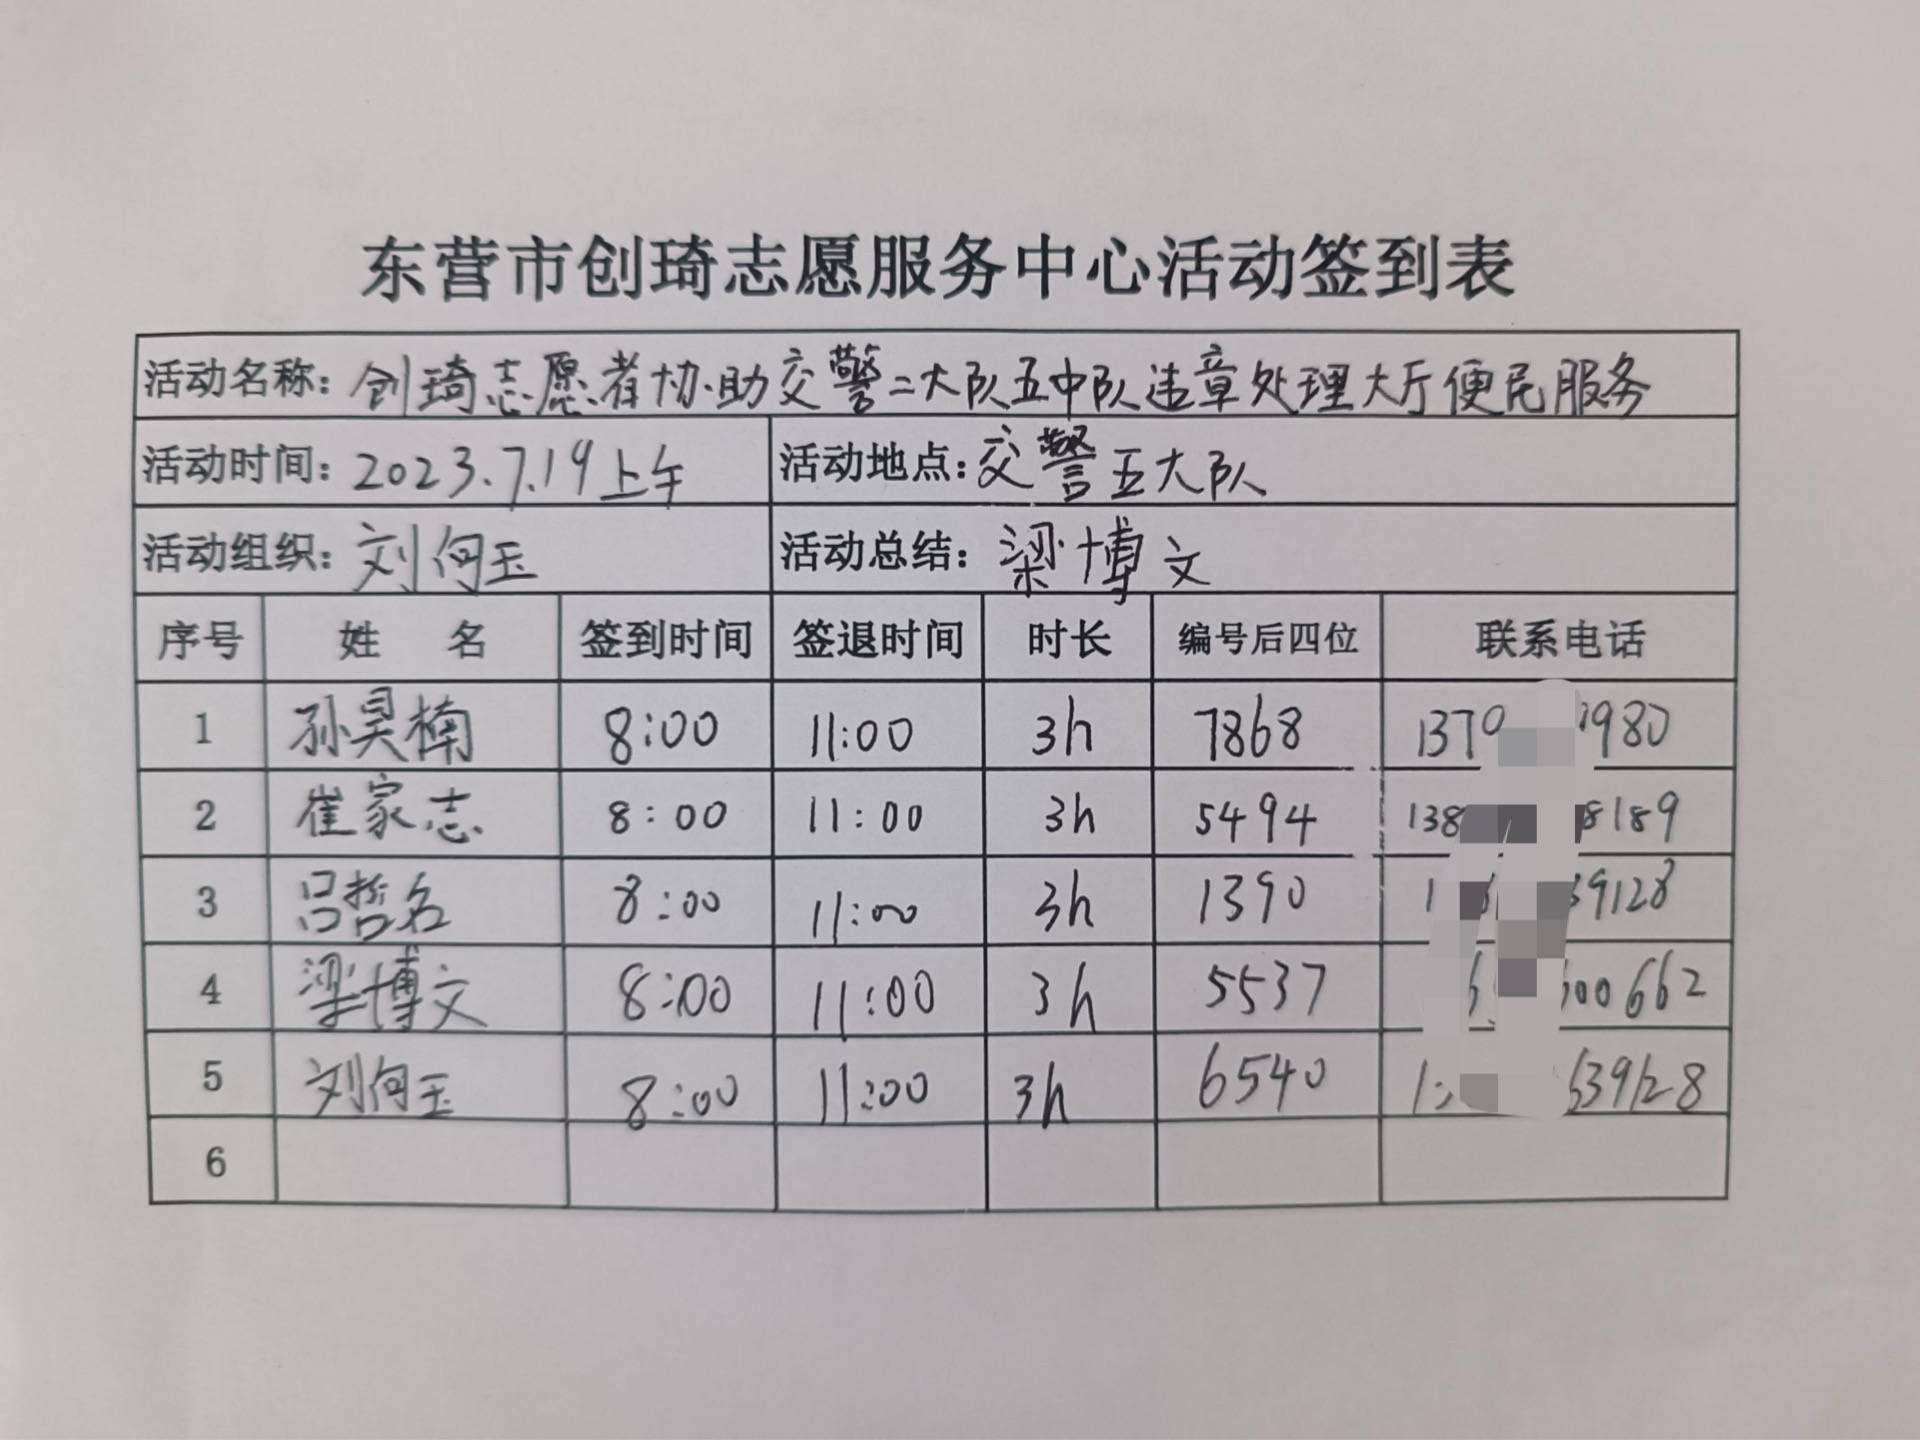 东营市创琦志愿服务中心活动签到表
活动名称：创琦志愿者协助交警二大队五中队违章处理大厅便民服务
活动时间：2023.7.19上午 活动地点：交警五大队
活动组织：刘何玉 活动总结：梁博文
序号 姓 名 签到时间 签退时间 时长 编号后四位 联系电话
1 孙昊楠 8:00 11:00 3h 7868 1370 980
2 崔家志 8:00 11:00 3h 5494 138 8189
3 吕哲名 8:00 11:00 3h 1390 1 39128
4 梁博文 8:00 11:00 3h 5537 600662
5 刘何玉 8:00 11:00 3h 6540 1 639128
6